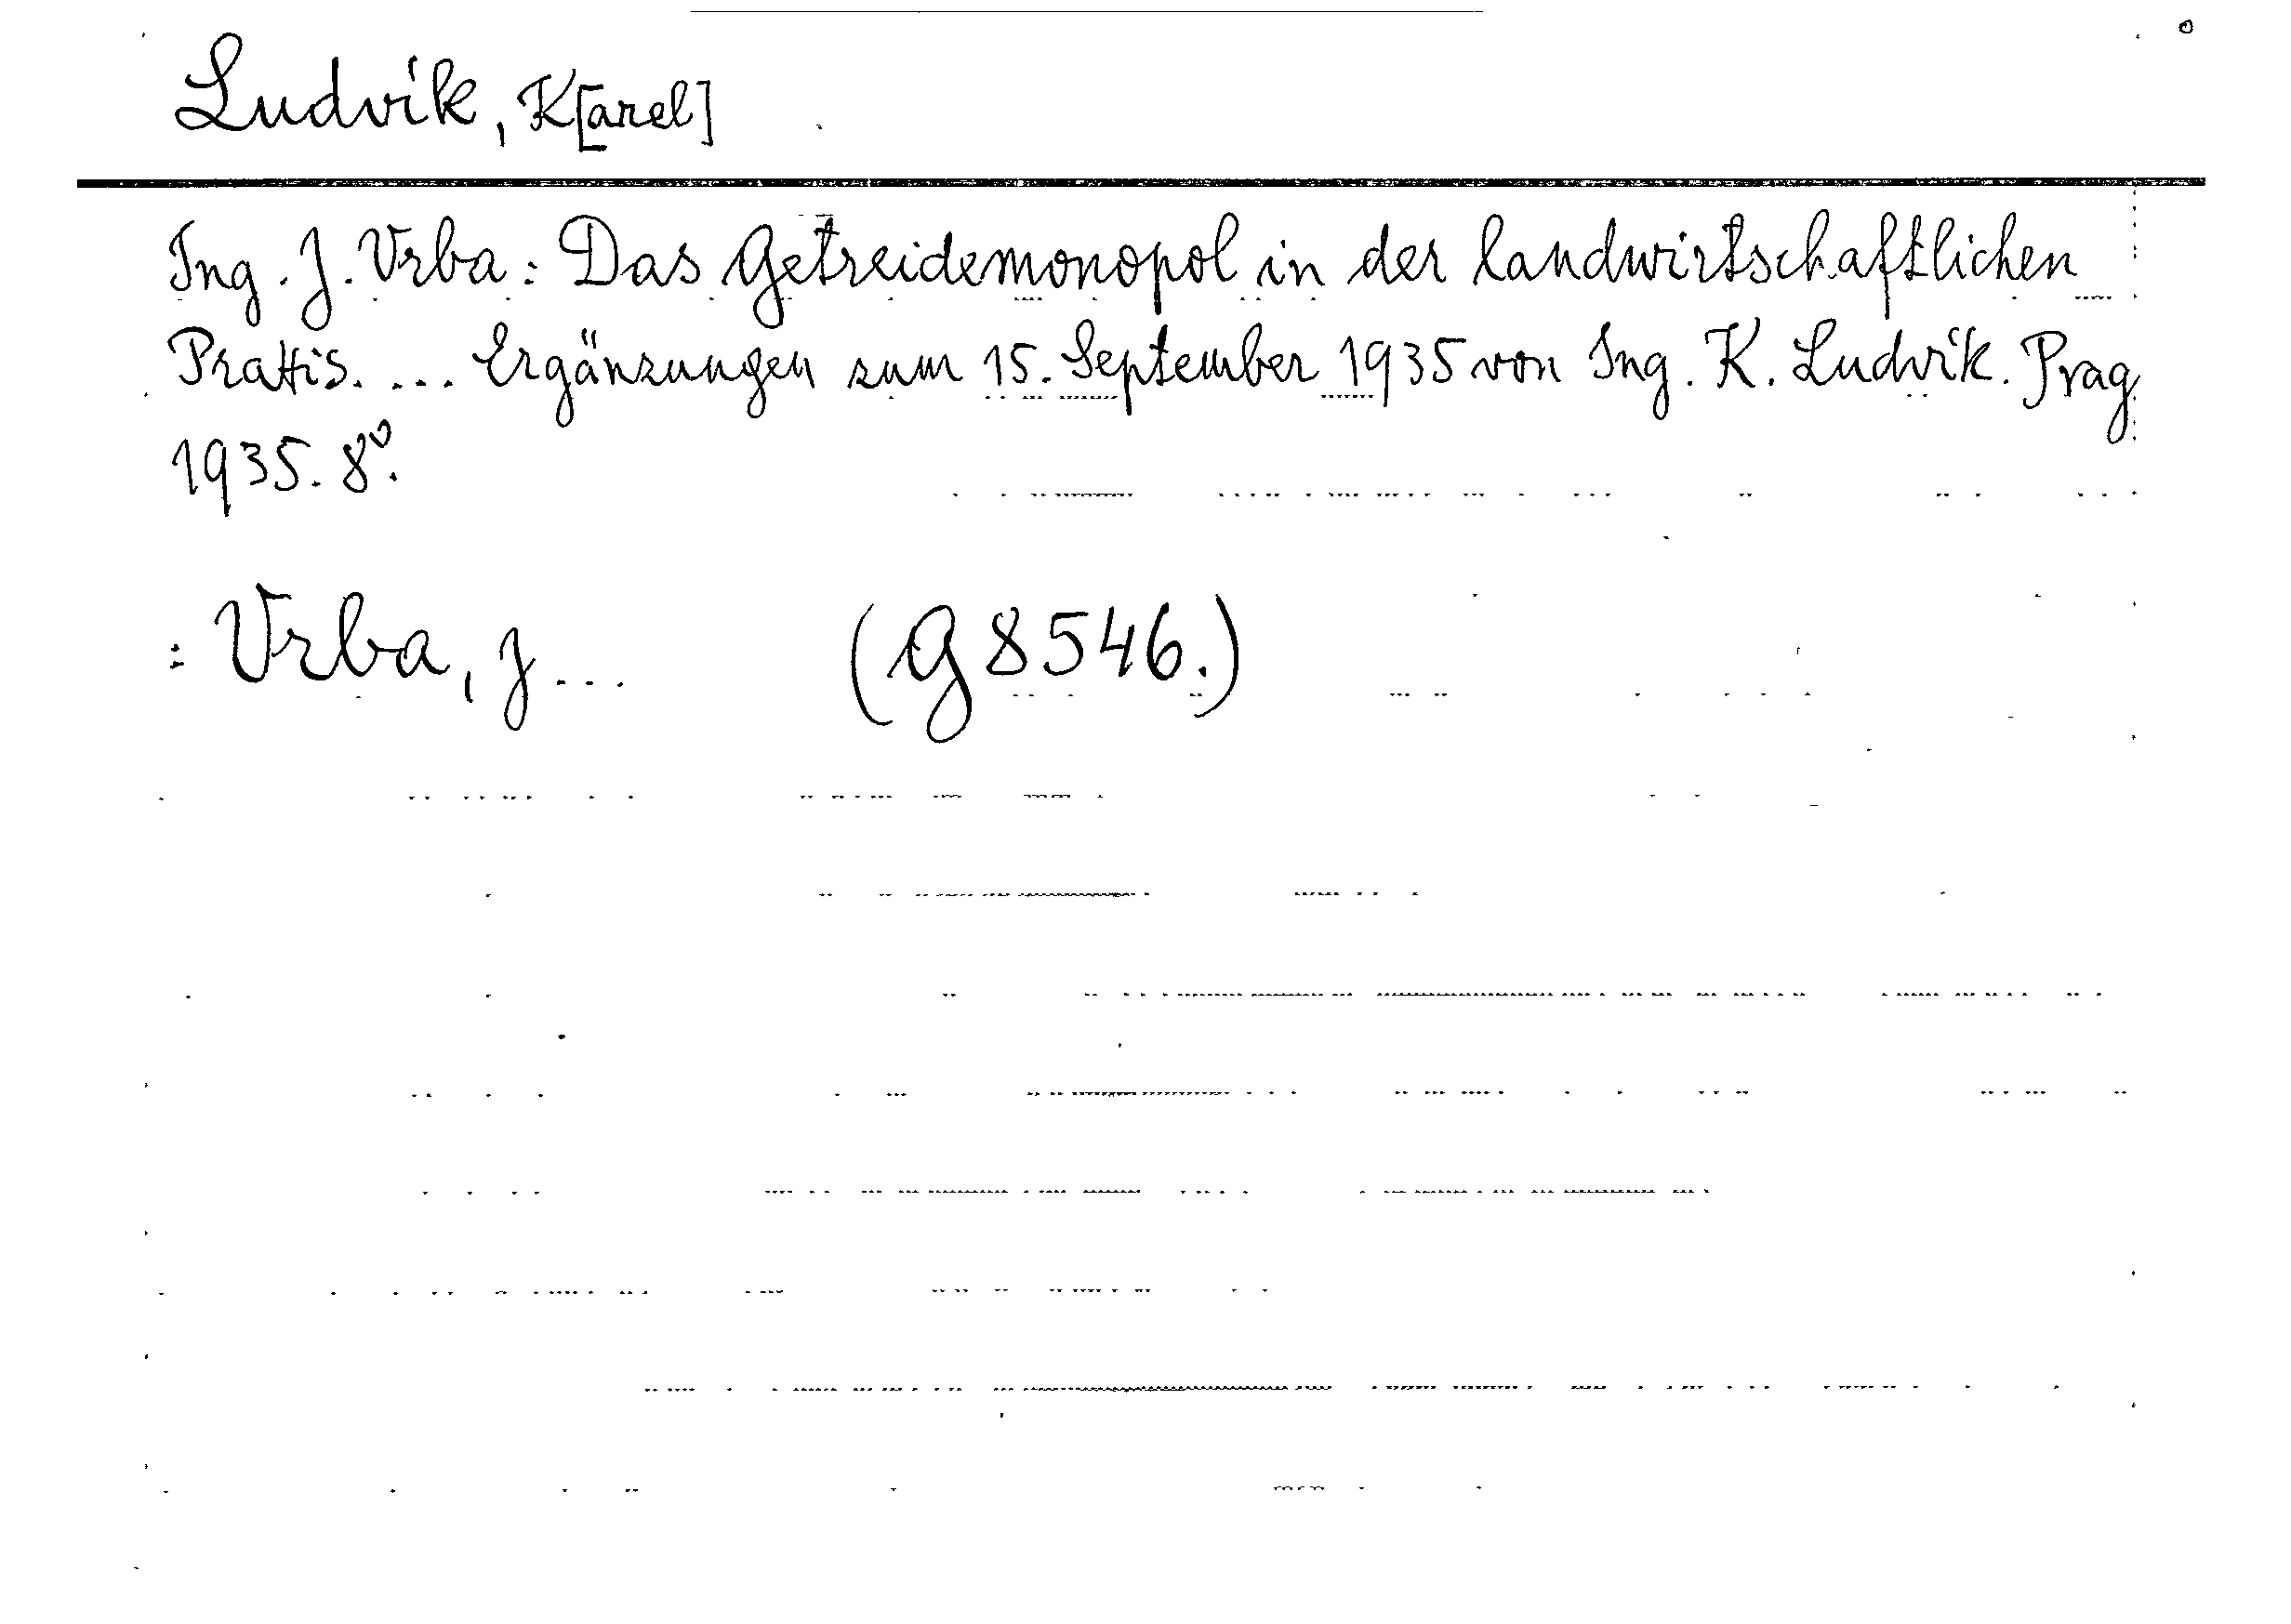 Ludvík, K[arel]
Ing. J. Vrba: Das Getreidemonopol in der landwirtschaftlichen
Prattis. ... Ergänzungen zum 15. September 1935 von Ing. K. Ludvík. Prag
1935. 8°.
= Vrba, J... (G 8546.)